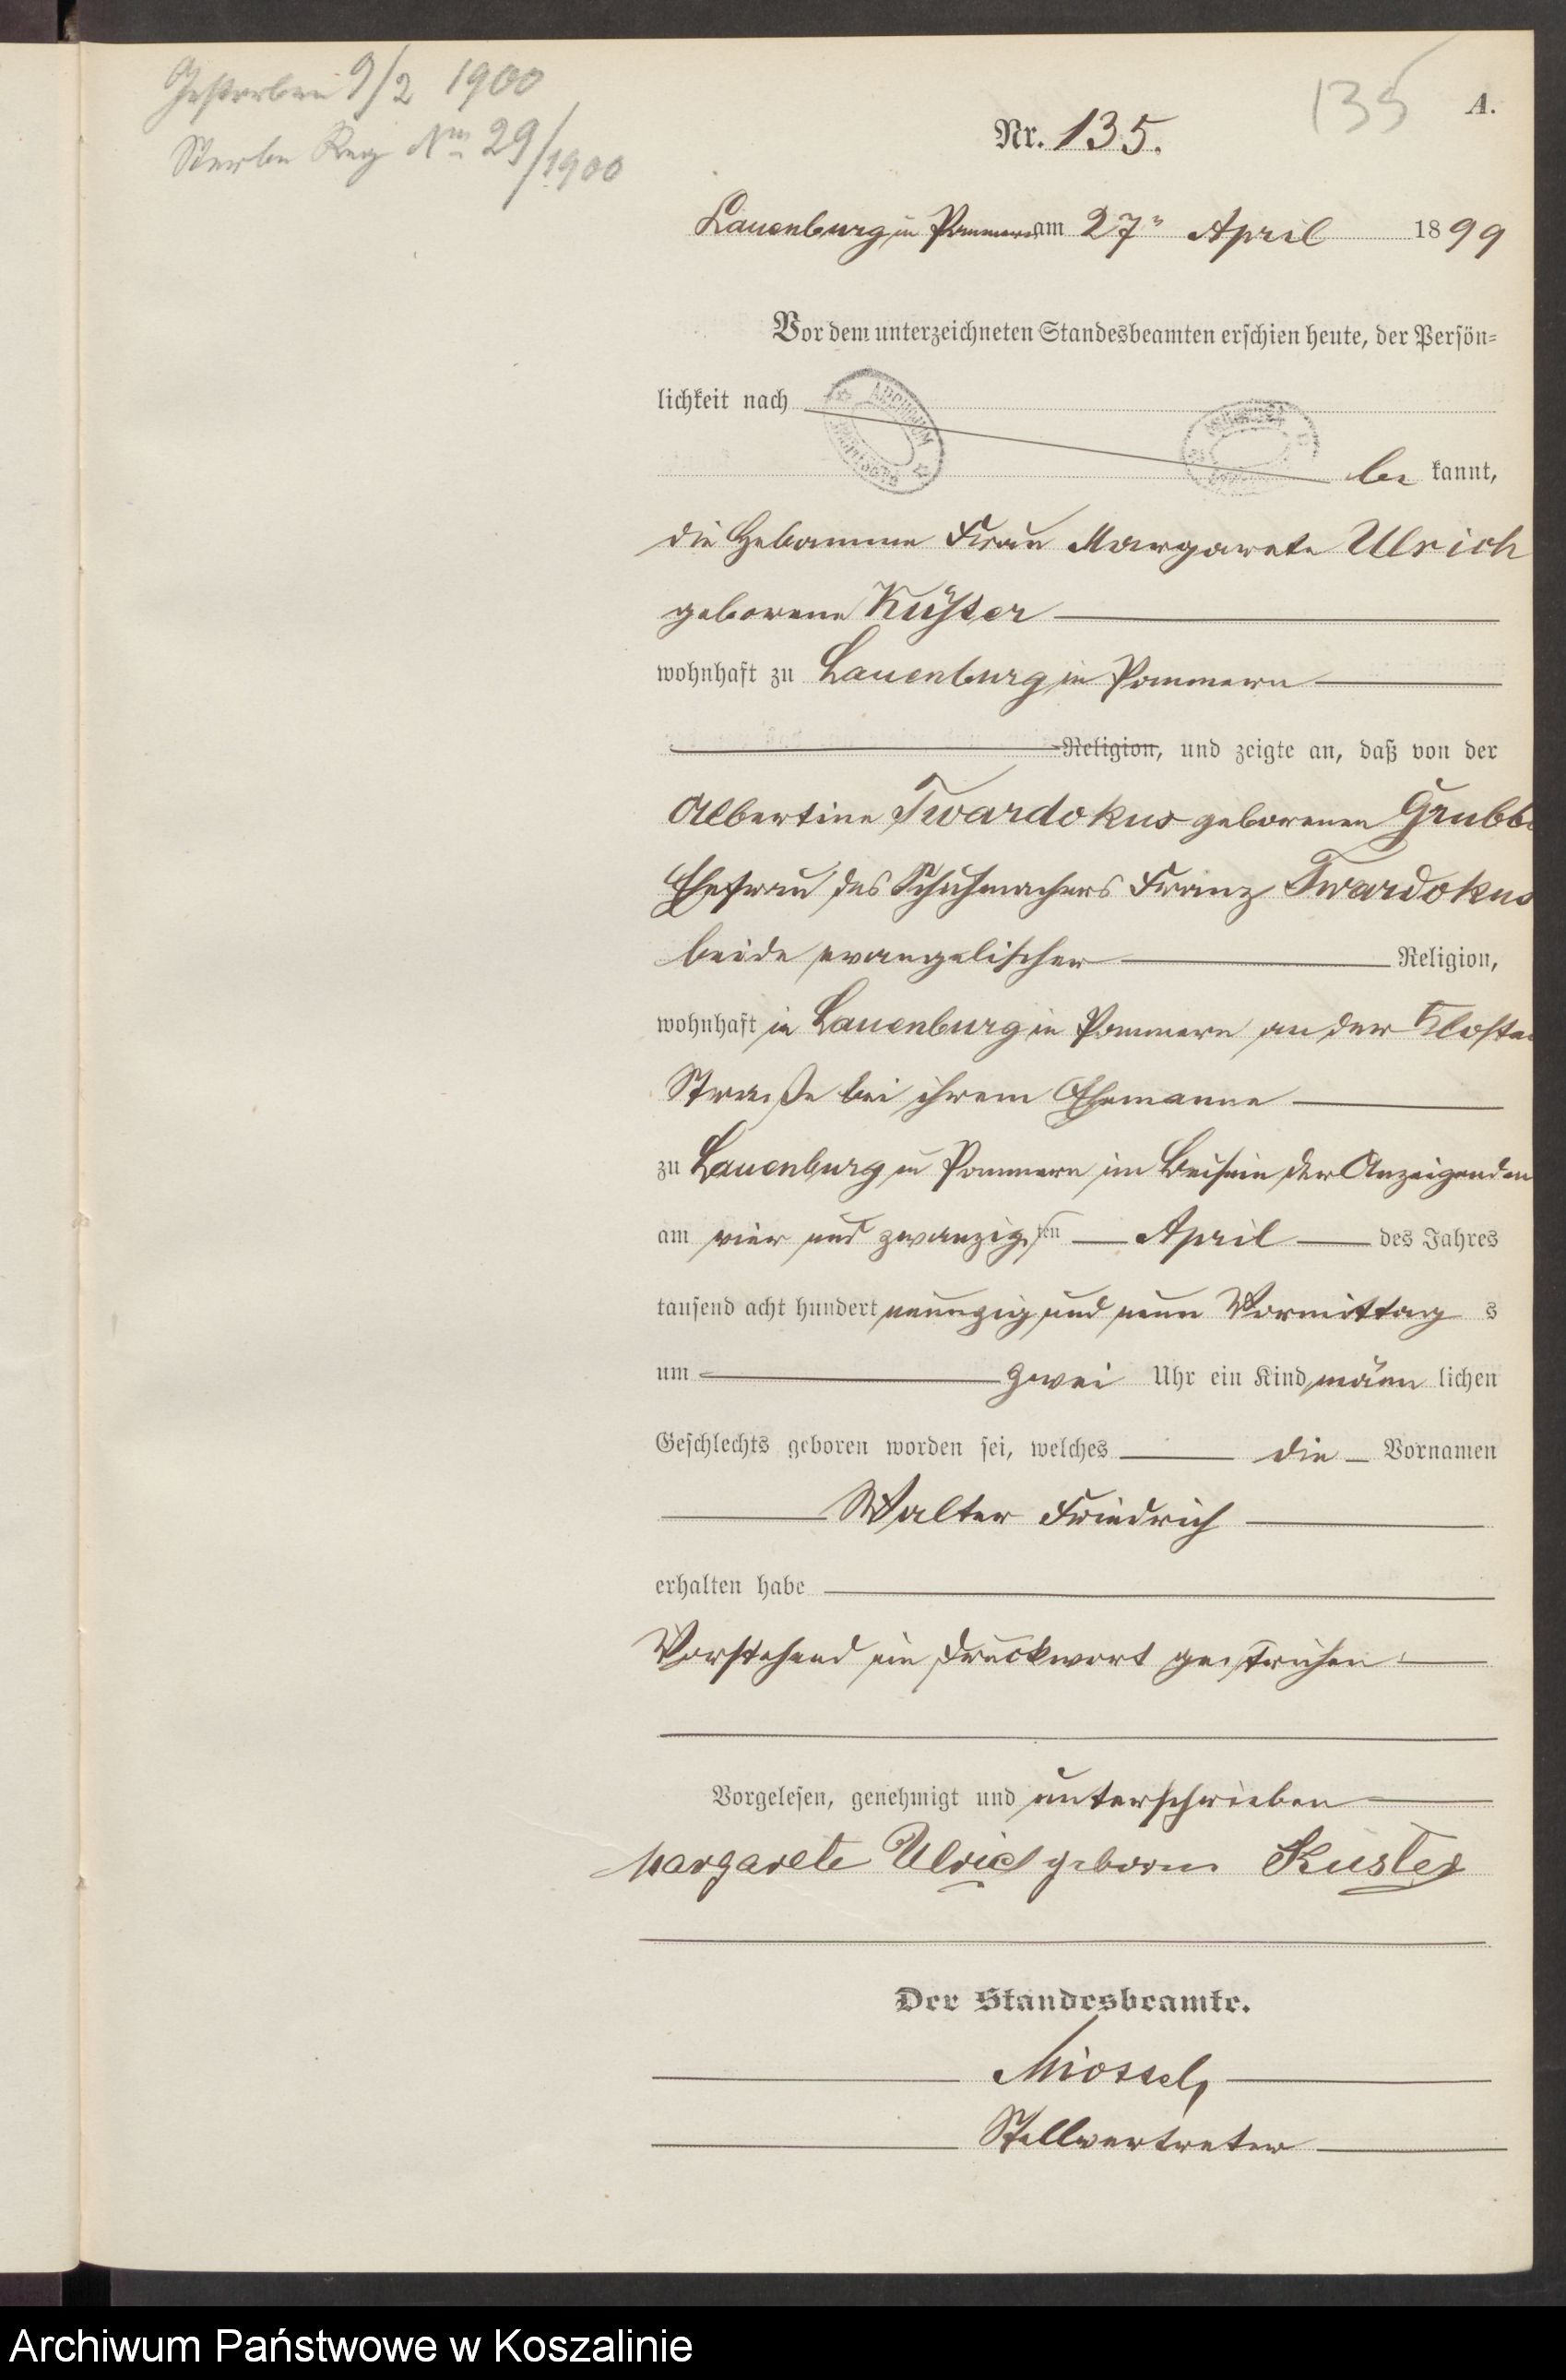 Gestorben 9/2 1900
Sterbe Reg Nro 29/1900
135
A.
Nr. 135.
Lauenburg in Pommern am 27ten April 1899
Vor dem unterzeichneten Standesbeamten erschien heute, der Persön-
lichkeit nach
ARCHIWUM
be kannt,
die Hebamme Frau Margarete Ulrich
geborene Küster
wohnhaft zu Lauenburg in Pommern
Religion, und zeigte an, daß von der
Albertine Twardokus geborenen Grubba
Ehefrau des Schuhmachers Franz Twardokus
beide evangelischer Religion,
wohnhaft in Lauenburg in Pommern an der Kloster
Straße bei ihrem Ehemanne
zu Lauenburg in Pommern im Beisein der Anzeigenden
am vier und zwanzigsten April des Jahres
tausend acht hundert neunzig und neun Vormittag s
um zwei Uhr ein Kind männ lichen
Geschlechts geboren worden sei, welches die Vornamen
Walter Friedrich
erhalten habe
Vorstehend ein Druckwort gestrichen
Vorgelesen, genehmigt und unterschrieben
Margarete Ulrich geborne Küster
Der Standesbeamte.
Stellvertreter
Archiwum Państwowe w Koszalinie